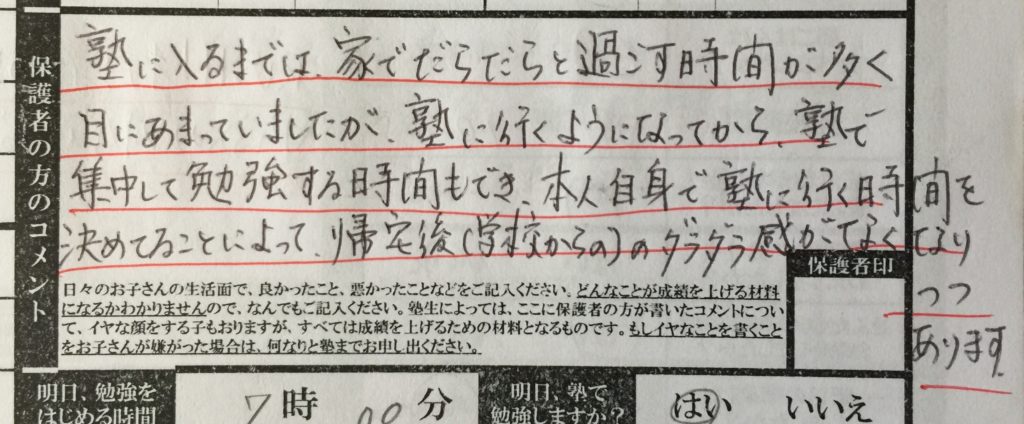 保護者の方のコメント
塾に入るまでは、家でだらだらと過ごす時間が多く
目にあまっていましたが、塾に行くようになってから、塾で
集中して勉強する時間もでき、本人自身で塾に行く時間を
決めてることによって、帰宅後(学校からの)のダラダラ感がでなくなり
つつ
あります。
保護者印
日々のお子さんの生活面で、良かったこと、悪かったことなどをご記入ください。どんなことが成績を上げる材料
になるかわかりませんので、なんでもご記入ください。塾生によっては、ここに保護者の方が書いたコメントについ
て、イヤな顔をする子もおりますが、すべては成績を上げるための材料となるものです。もしイヤなことを書くこと
をお子さんが嫌がった場合は、何なりと塾までお申し出ください。
明日、勉強を
はじめる時間
7時00分
明日、塾で
勉強しますか?
はい いいえ